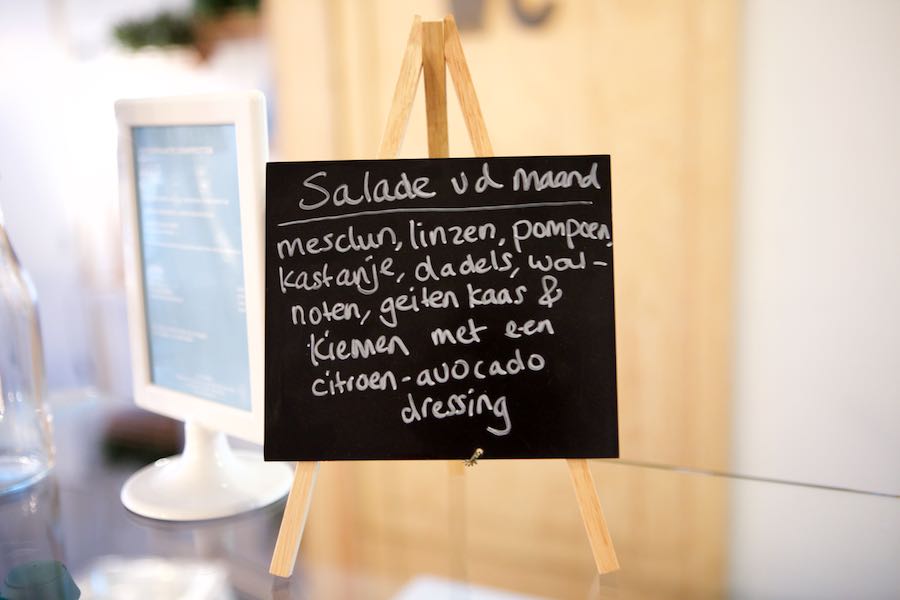 Salade vd maand
mesclun, linzen, pompoen,
kastanje, dadels, wal-
noten, geiten kaas &
kiemen met een
citroen-avocado
dressing